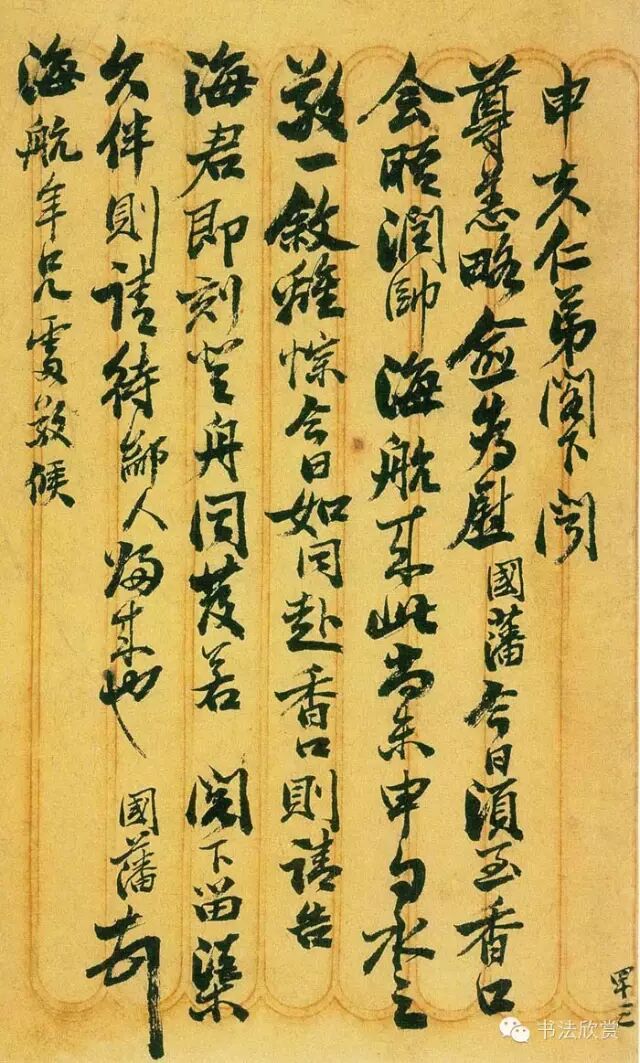 申夫仁弟閣下聞
尊恙略愈為慰國藩今日須至香口
会晤潤帥海航来此尚未申勺水之
敬一敘離悰今日如同赴香口則請告
海君即刻登舟同發若閣下留渠
久伴則請待鄙人歸来也國藩頓
海航年兄處敬候
书法欣赏